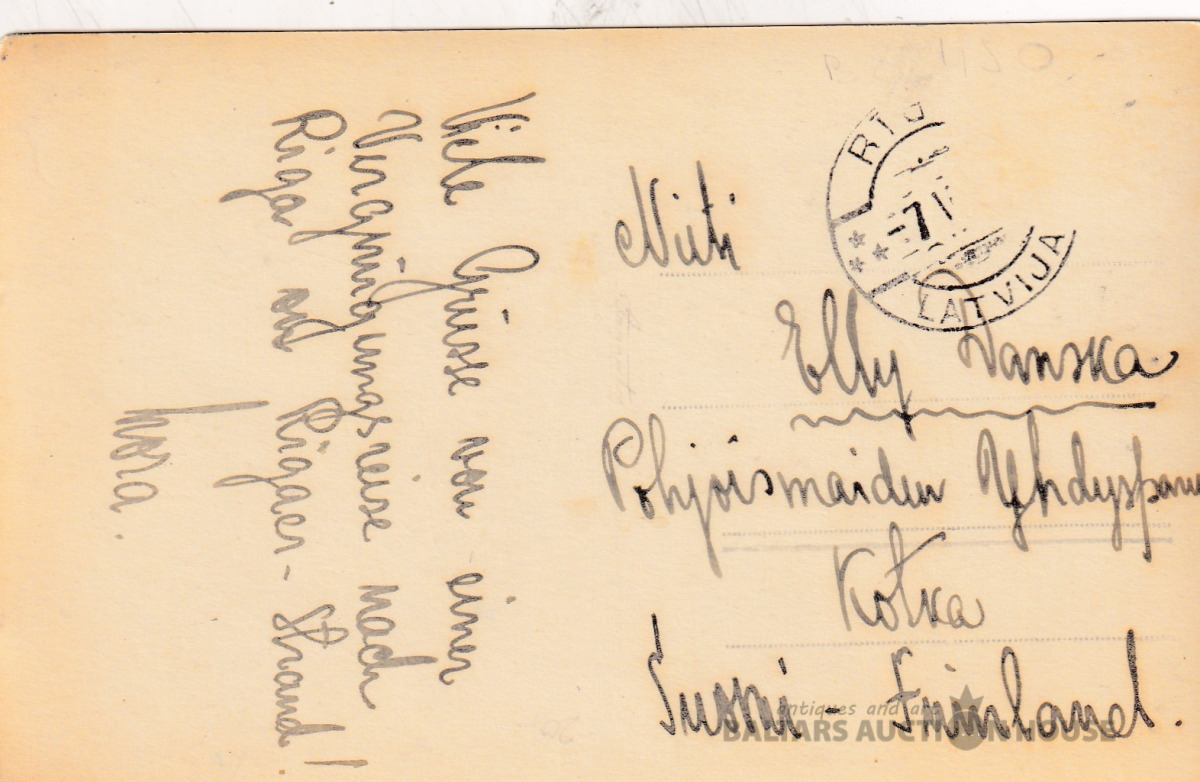 Viele Grüsse von einer
Vergnüngungsreise nach
Riga und Rigaer-Strand!
Nora.
RIG
7 I
LATVIJA
Neiti
Elly Vanska
Pohjoismaiden Yhdyspan
Kotka
Suomi - Finnland.
antiques and art
BALTARS AUCTION HOUSE